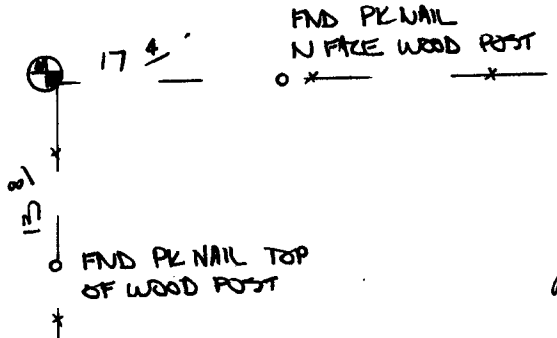 FND PK NAIL
N FACE WOOD POST
17 4'
13 8
FND PK NAIL TOP
OF WOOD POST